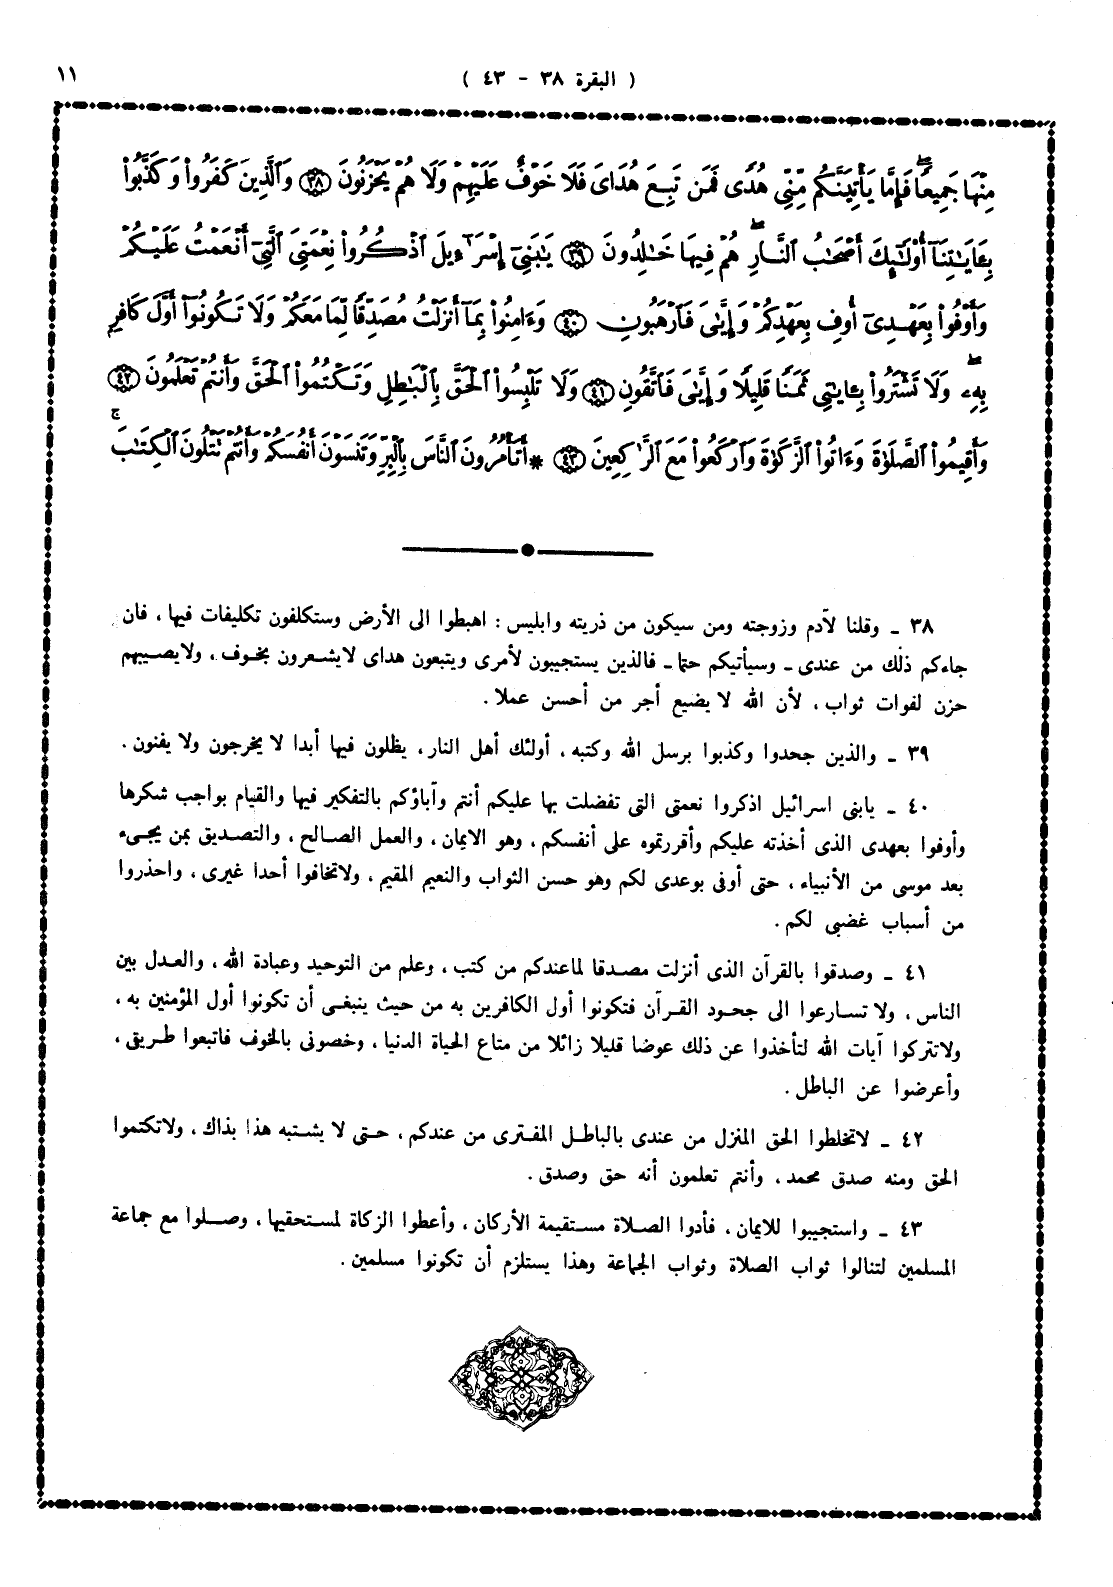 ( البقرة ٣٨ - ٤٣ )
١١
مِنْهَا جَمِيعًا ۖ فَإِمَّا يَأْتِيَنَّكُم مِّنِّي هُدًى فَمَن تَبِعَ هُدَايَ فَلَا خَوْفٌ عَلَيْهِمْ وَلَا هُمْ يَحْزَنُونَ ﴿٣٨﴾ وَٱلَّذِينَ كَفَرُوا۟ وَكَذَّبُوا۟
بِـَٔايَـٰتِنَآ أُو۟لَـٰٓئِكَ أَصْحَـٰبُ ٱلنَّارِ ۖ هُمْ فِيهَا خَـٰلِدُونَ ﴿٣٩﴾ يَـٰبَنِىٓ إِسْرَٰٓءِيلَ ٱذْكُرُوا۟ نِعْمَتِىَ ٱلَّتِىٓ أَنْعَمْتُ عَلَيْكُمْ
وَأَوْفُوا۟ بِعَهْدِىٓ أُوفِ بِعَهْدِكُمْ وَإِيَّـٰىَ فَٱرْهَبُونِ ﴿٤٠﴾ وَءَامِنُوا۟ بِمَآ أَنزَلْتُ مُصَدِّقًا لِّمَا مَعَكُمْ وَلَا تَكُونُوٓا۟ أَوَّلَ كَافِرٍۭ
بِهِۦ ۖ وَلَا تَشْتَرُوا۟ بِـَٔايَـٰتِى ثَمَنًا قَلِيلًا وَإِيَّـٰىَ فَٱتَّقُونِ ﴿٤١﴾ وَلَا تَلْبِسُوا۟ ٱلْحَقَّ بِٱلْبَـٰطِلِ وَتَكْتُمُوا۟ ٱلْحَقَّ وَأَنتُمْ تَعْلَمُونَ ﴿٤٢﴾
وَأَقِيمُوا۟ ٱلصَّلَوٰةَ وَءَاتُوا۟ ٱلزَّكَوٰةَ وَٱرْكَعُوا۟ مَعَ ٱلرَّٰكِعِينَ ﴿٤٣﴾ * أَتَأْمُرُونَ ٱلنَّاسَ بِٱلْبِرِّ وَتَنسَوْنَ أَنفُسَكُمْ وَأَنتُمْ تَتْلُونَ ٱلْكِتَـٰبَ ۚ
٣٨ ـ وقلنا لآدم وزوجته ومن سيكون من ذريته وابليس : اهبطوا الى الأرض وستكلفون تكليفات فيها ، فان
جاءكم ذلك من عندى ـ وسيأتيكم حتما ـ فالذين يستجيبون لأمرى ويتبعون هداى لايشعرون بخوف ، ولايصيبهم
حزن لفوات ثواب ، لأن الله لا يضيع أجر من أحسن عملا .
٣٩ ـ والذين جحدوا وكذبوا برسل الله وكتبه ، أولئك أهل النار ، يظلون فيها أبدا لا يخرجون ولا يفنون .
٤٠ ـ يابنى اسرائيل اذكروا نعمتى التى تفضلت بها عليكم أنتم وآباؤكم بالتفكير فيها والقيام بواجب شكرها
وأوفوا بعهدى الذى أخذته عليكم وأقررتموه على أنفسكم ، وهو الايمان ، والعمل الصالح ، والتصديق بمن يجىء
بعد موسى من الأنبياء ، حتى أوفى بوعدى لكم وهو حسن الثواب والنعيم المقيم ، ولاتخافوا أحدا غيرى ، واحذروا
من أسباب غضبى لكم .
٤١ ـ وصدقوا بالقرآن الذى أنزلت مصدقا لماعندكم من كتب ، وعلم من التوحيد وعبادة الله ، والعدل بين
الناس ، ولا تسارعوا الى جحود القرآن فتكونوا أول الكافرين به من حيث ينبغى أن تكونوا أول المؤمنين به ،
ولاتتركوا آيات الله لتأخذوا عن ذلك عوضا قليلا زائلا من متاع الحياة الدنيا ، وخصونى بالخوف فاتبعوا طريق ،
وأعرضوا عن الباطل .
٤٢ ـ لاتخلطوا الحق المنزل من عندى بالباطل المفترى من عندكم ، حتى لا يشتبه هذا بذاك ، ولاتكتموا
الحق ومنه صدق محمد ، وأنتم تعلمون أنه حق وصدق .
٤٣ ـ واستجيبوا للايمان ، فأدوا الصلاة مستقيمة الأركان ، وأعطوا الزكاة لمستحقيها ، وصلوا مع جماعة
المسلمين لتنالوا ثواب الصلاة وثواب الجماعة وهذا يستلزم أن تكونوا مسلمين .